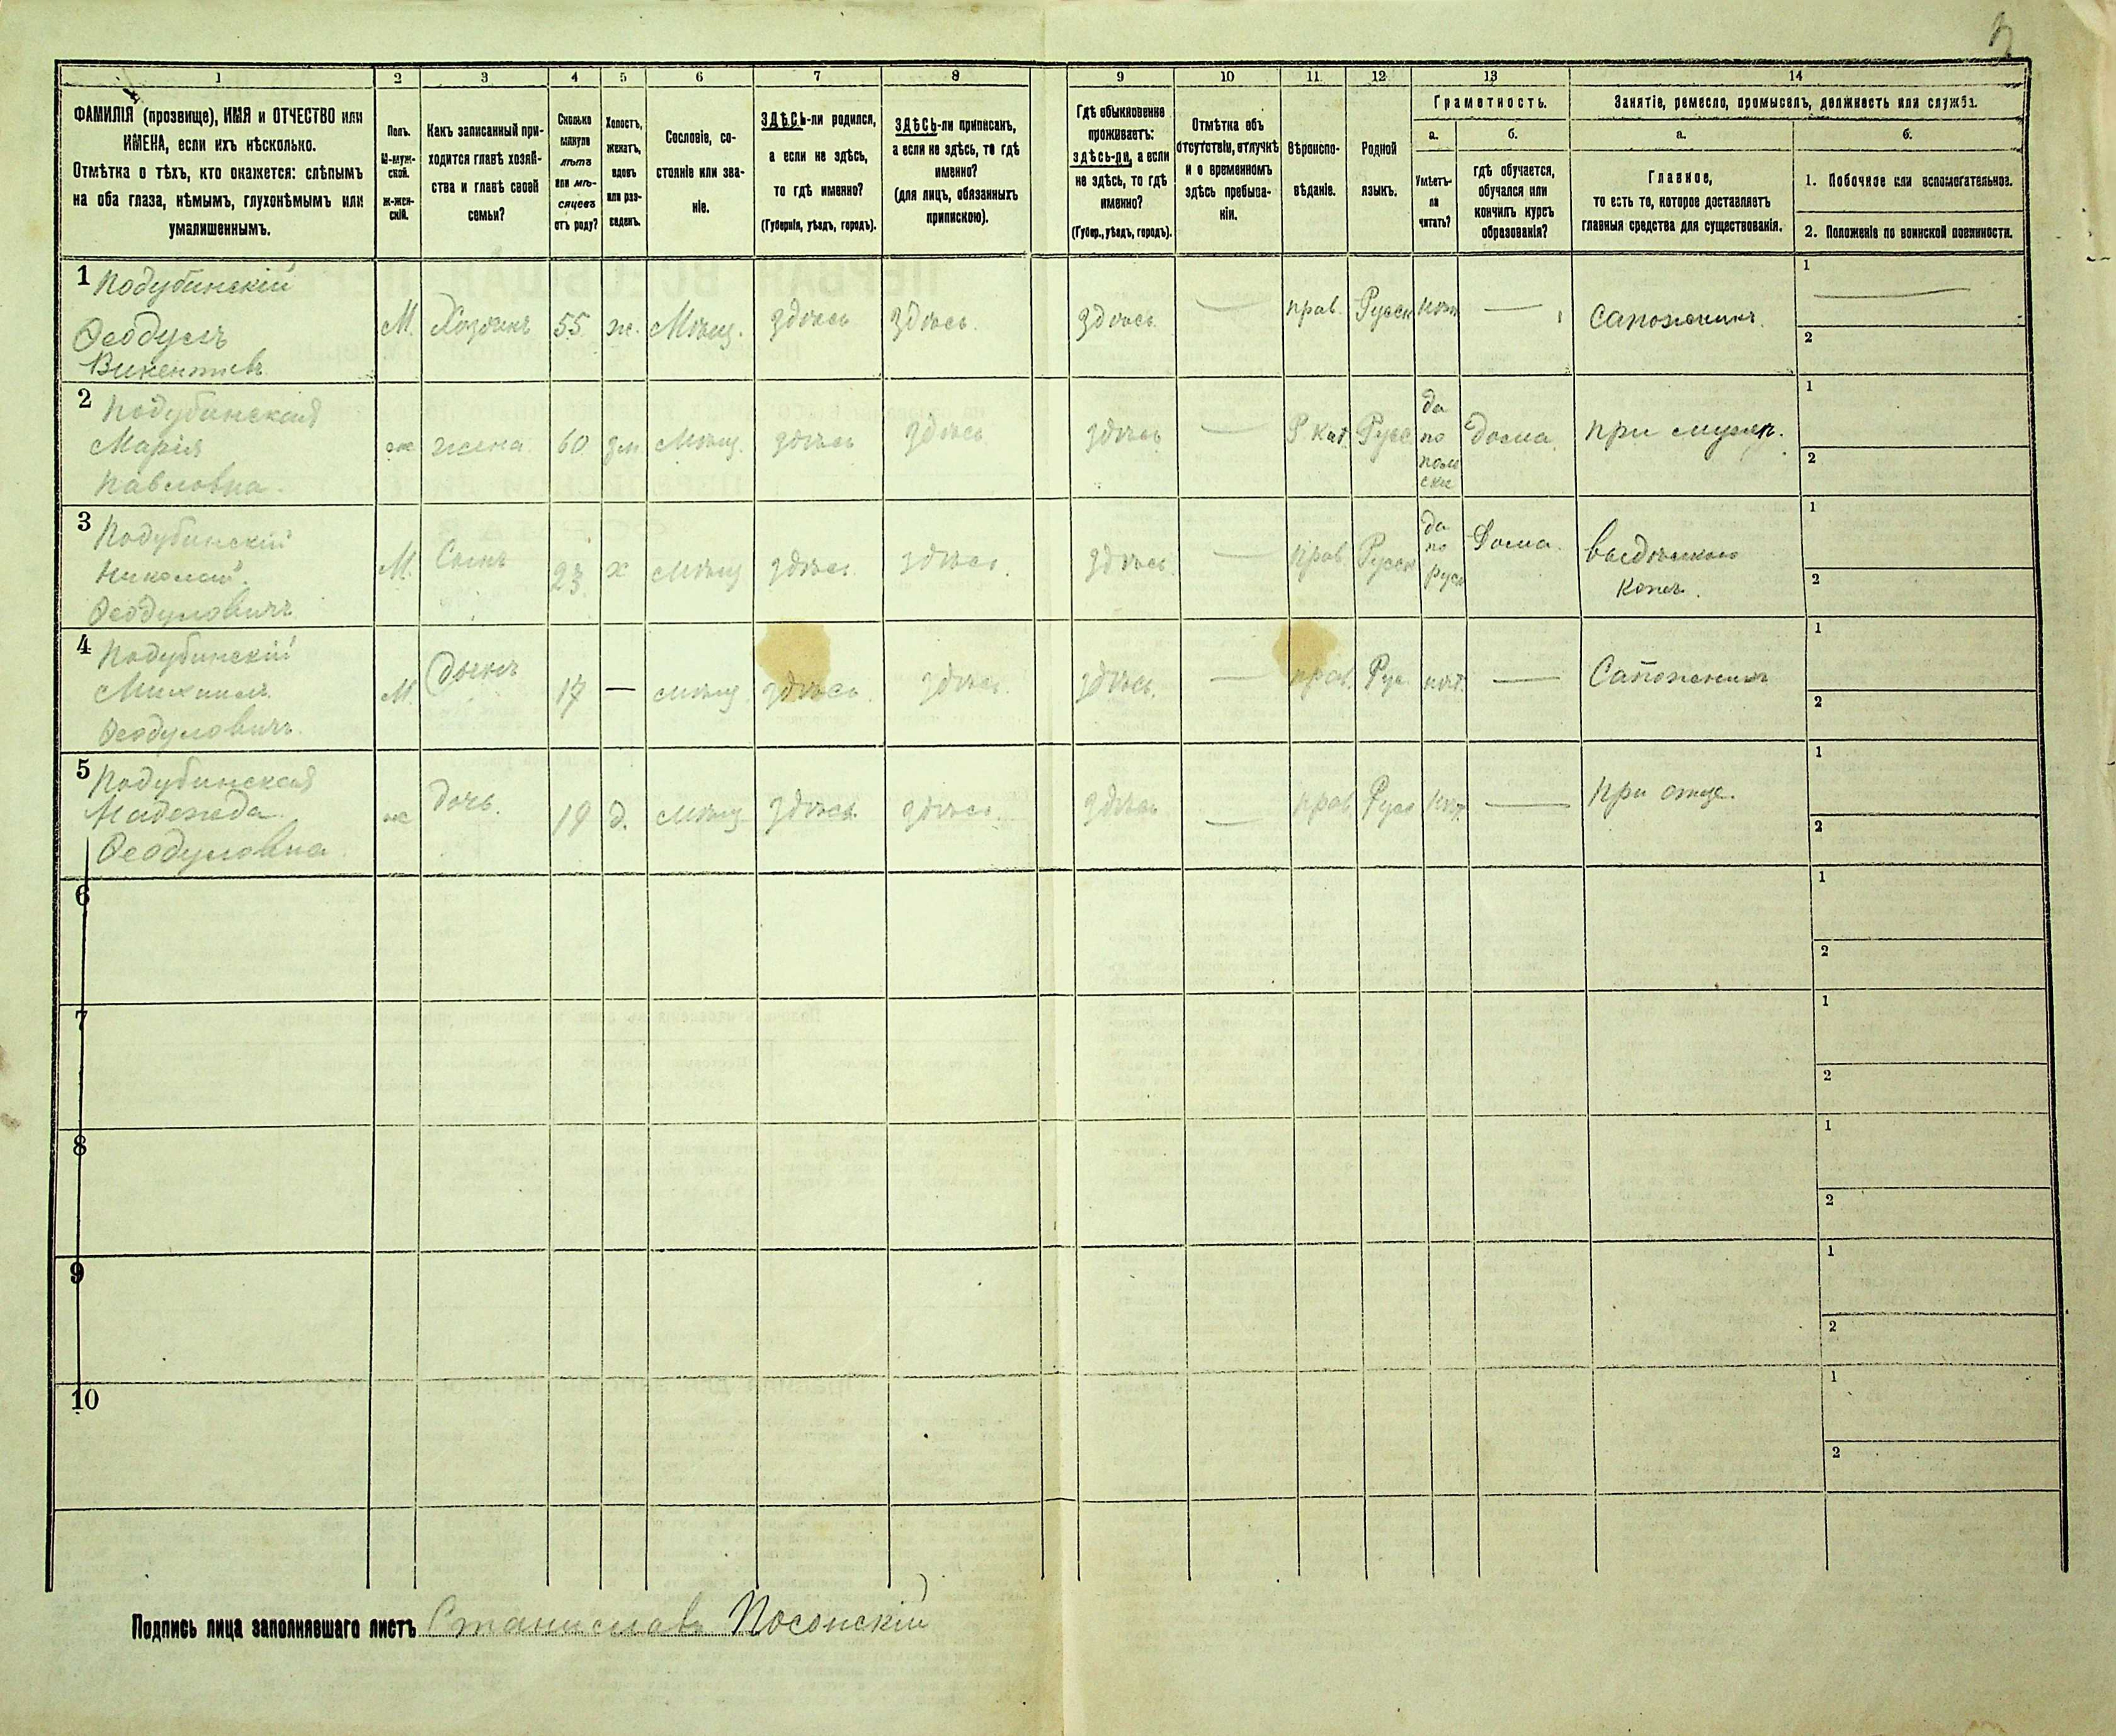 1 2 3 4 5 6 7 8 9 10 11 12 13 14
ФАМИЛІЯ (прозвище), ИМЯ и ОТЧЕСТВО или
ИМЕНА, если ихъ нѣсколько.
Отмѣтка о тѣхъ, кто окажется: слѣпымъ
на оба глаза, нѣмымъ, глухонѣмымъ или
умалишеннымъ.
Полъ.
М-муж-
ской.
ж-жен-
скій.
Какъ записанный при-
ходится главѣ хозяй-
ства и главѣ своей
семьи?
Сколько
минуло
лѣтъ
или мѣ-
сяцевъ
отъ роду?
Холостъ,
женатъ,
вдовъ
или раз-
веденъ.
Сословіе, со-
стояніе или зва-
ніе.
ЗДѢСЬ-ли родился,
а если не здѣсь,
то гдѣ именно?
(Губернія, уѣздъ, городъ).
ЗДѢСЬ-ли приписанъ,
а если не здѣсь, то гдѣ
именно?
(для лицъ, обязанныхъ
припискою).
Гдѣ обыкновенно
проживаетъ:
здѣсь-ли, а если
не здѣсь, то гдѣ
именно?
(Губер., уѣздъ, городъ).
Отмѣтка объ
отсутствіи, отлучкѣ
и о временномъ
здѣсь пребыва-
ніи.
Вѣроиспо-
вѣданіе.
Родной
языкъ.
Грамотность.
а. б.
Умѣетъ-
ли
читать?
гдѣ обучается,
обучался или
кончилъ курсъ
образованія?
Занятіе, ремесло, промыселъ, должность или служба.
а. б.
Главное,
то есть то, которое доставляетъ
главныя средства для существованія.
1. Побочное или вспомогательное.
2. Положеніе по воинской повинности.
1 Подубинскій
Феодулъ
Викентьев
М. Хозяинъ 55 ж. Мѣщ. здѣсь здѣсь. здѣсь — прав. Русск нѣт — сапожникъ. 1 — 2
2 Подубинская
Марія
Павловна.
ж жена 60 зм Мѣщ. здѣсь здѣсь. здѣсь — Р кат. Русс
да
по
поль
ски
дома при мужѣ. 1 2
3 Подубинскій
Николай.
Феодуловичъ
М. Сынъ 23 х мѣщ здѣсь здѣсь. здѣсь. — прав. Русск
да
по
русс
Дома.
выдѣлкою
кожъ. 1 2
4 Подубинскій
Михаилъ
Феодуловичъ.
М. Сынъ 17 — мѣщ. здѣсь. здѣсь. здѣсь. — прав. Рус нѣт. — Сапожникъ 1 2
5 Подубинская
Надежда.
Феодуловна.
ж дочь. 19 д. мѣщ здѣсь. здѣсь. здѣсь — прав Русс нѣт. — при отцѣ. 1 2
6 1 2
7 1 2
8 1 2
9 1 2
10 1 2
Подпись лица заполнявшаго листъ Станиславъ Посопскій